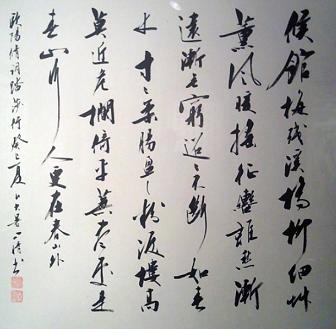 候館梅残溪橋柳細艸
薰風暖搖征轡離愁漸
遠漸无窮迢〻不断如春
水寸〻柔腸盈〻粉淚樓高
莫近危欄倚平蕪尽處是
春山行人更在春山外
歐陽脩詞踏莎行癸巳夏